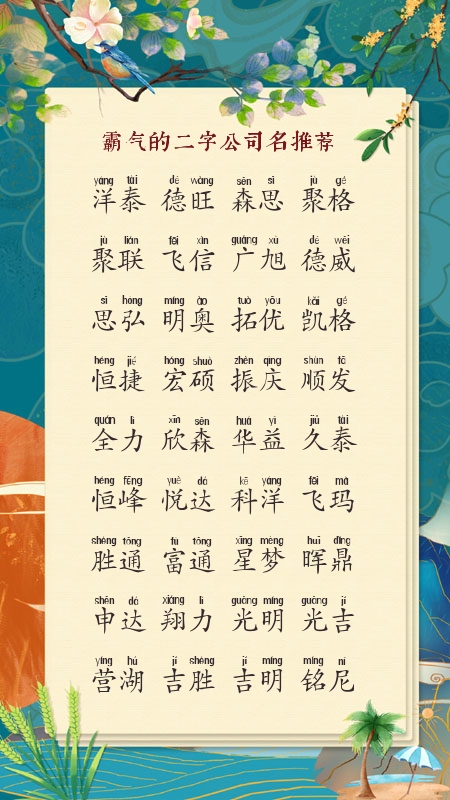 霸气的二字公司名推荐
yáng tài dé wàng sēn sī jù gé
洋泰 德旺 森思 聚格
jù lián fēi xìn guǎng xù dé wēi
聚联 飞信 广旭 德威
sī hóng míng ào tuò yōu kǎi gé
思弘 明奥 拓优 凯格
héng jié hóng shuò zhèn qìng shùn fā
恒捷 宏硕 振庆 顺发
quán lì xīn sēn huá yì jiǔ tài
全力 欣森 华益 久泰
héng fēng yuè dá kē yáng fēi mǎ
恒峰 悦达 科洋 飞玛
shèng tōng fù tōng xīng mèng huī dǐng
胜通 富通 星梦 晖鼎
shēn dá xiáng lì guāng míng guāng jí
申达 翔力 光明 光吉
yíng hú jí shèng jí míng míng ní
营湖 吉胜 吉明 铭尼